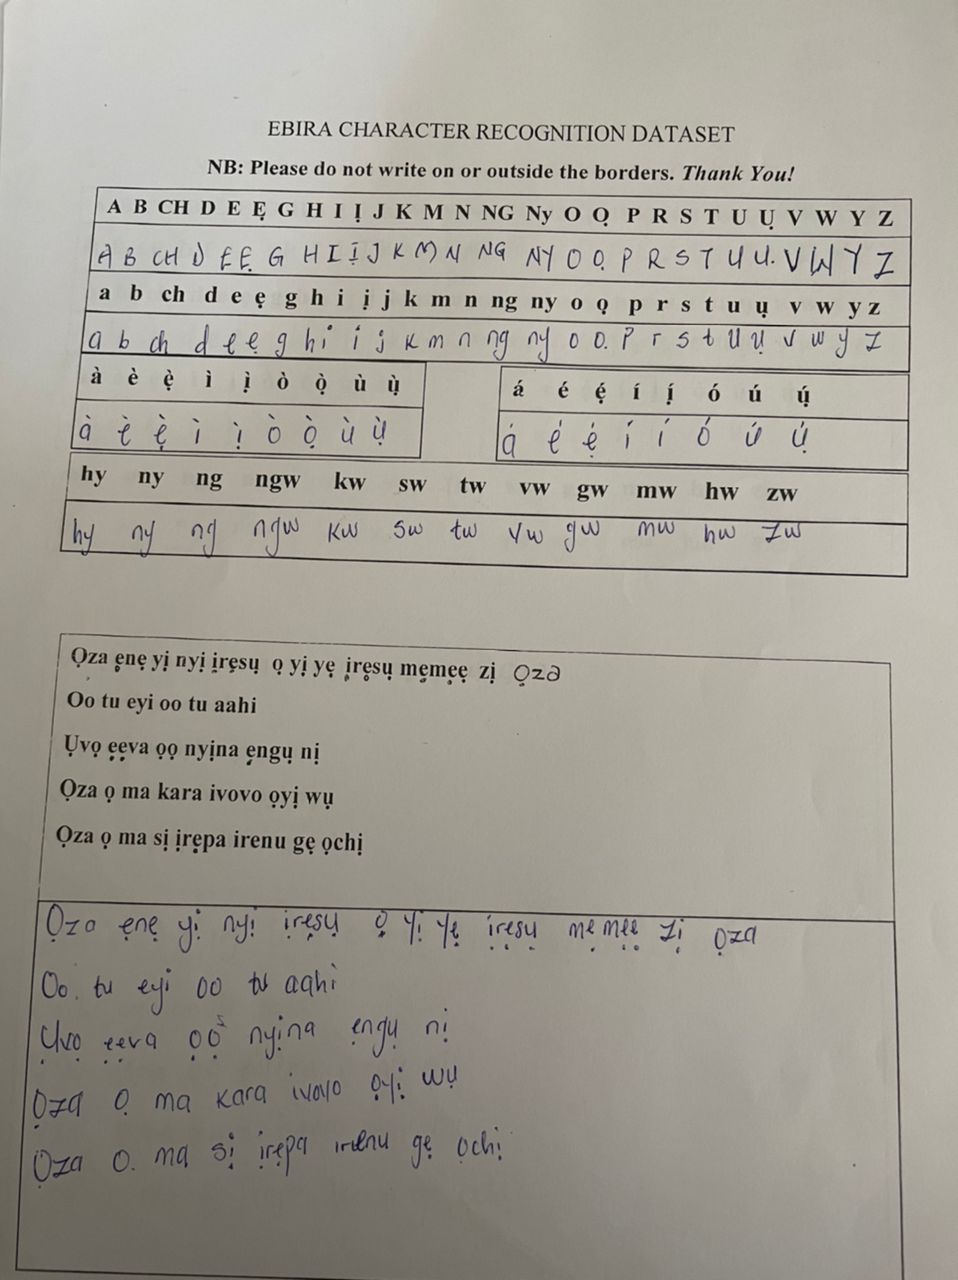 EBIRA CHARACTER RECOGNITION DATASET
NB: Please do not write on or outside the borders. Thank You!
A B CH D E Ẹ G H I Ị J K M N NG Ny O Ọ P R S T U Ụ V W Y Z
A B CH D E Ẹ G H I Ị J K M N NG NY O Ọ P R S T U Ụ V W Y Z
a b ch d e ẹ g h i ị j k m n ng ny o ọ p r s t u ụ v w y z
a b ch d e ẹ g h i ị j k m n ng ny o ọ p r s t u ụ v w y z
à è ẹ̀ ì ị̀ ò ọ̀ ù ụ̀
à è ẹ̀ ì ị̀ ò ọ̀ ù ụ̀
á é ẹ́ í ị́ ó ú ụ́
á é ẹ́ í í ó ú ụ́
hy ny ng ngw kw sw tw vw gw mw hw zw
hy ny ng ngw kw sw tw vw gw mw hw zw
Ọza ẹnẹ yị nyị ịrẹsụ ọ yị yẹ ịrẹsụ mẹmẹẹ zị Ọza
Oo tu eyi oo tu aahi
Ụvọ ẹẹva ọọ nyịna ẹngụ nị
Ọza ọ ma kara ivovo ọyị wụ
Ọza ọ ma sị ịrẹpa irenu gẹ ọchị
Ọza ẹnẹ yị nyị ịrẹsụ ọ yị yẹ ịrẹsụ mẹmẹẹ zị ọza
Oo. tu eyi oo tu aahi
Ụvọ ẹẹva ọọ nyịna ẹngụ nị
Ọza Ọ ma kara ivovo ọyị wụ
Ọza O. ma sị ịrẹpa irenu gẹ ọchị